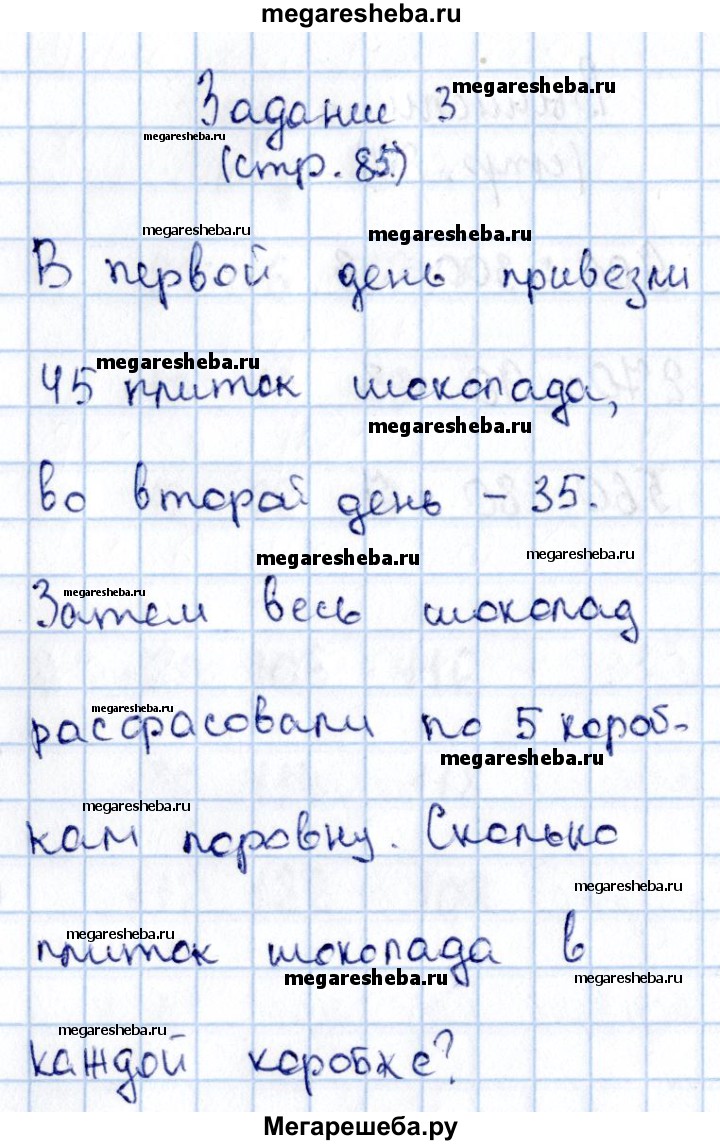 megaresheba.ru
Задание 3 megaresheba.ru
megaresheba.ru
(стр. 85.)
megaresheba.ru megaresheba.ru
В первой день привезли
megaresheba.ru
45 плиток шоколада,
megaresheba.ru
во второй день – 35.
megaresheba.ru megaresheba.ru
megaresheba.ru
Затем весь шоколад
megaresheba.ru
расфасовали по 5 короб-
megaresheba.ru
megaresheba.ru
кам поровну. Сколько
megaresheba.ru
megaresheba.ru
плиток шоколада в
megaresheba.ru
megaresheba.ru
каждой коробке?
Мегарешеба.ру